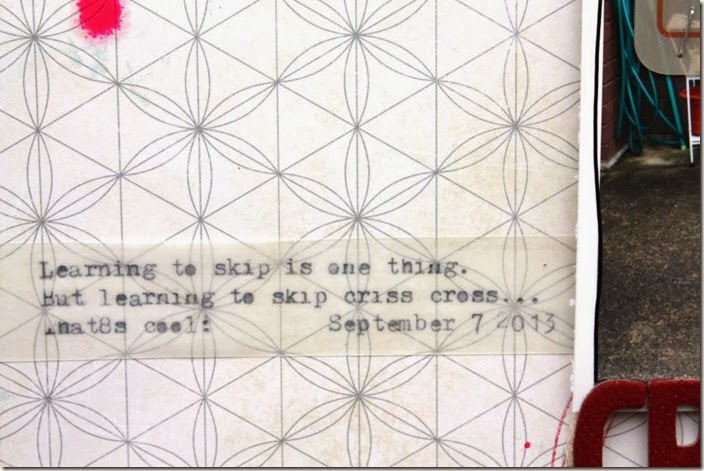 Learning to skip is one thing.
But learning to skip criss cross...
That8s cool! September 7 2013
CR